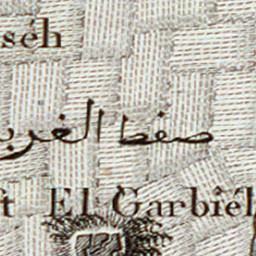 séh
صفط الغرب
t El Garbiêh